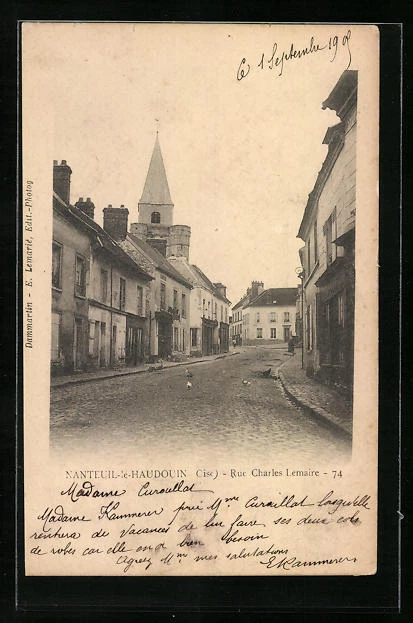 Le 1 Septembre 1905
Dammartin - E. Lemarié, Edit.-Photog
NANTEUIL-le-HAUDOUIN (Oise) - Rue Charles Lemaire - 74
Madame Curoillat
Madame Kammerer prie Mme Curoillat lorsquelle
rentrera de vacances de lui faire, ses deux cols
de robes car elle en a bien besoin
Agréez Mme mes salutations
E Kammerer